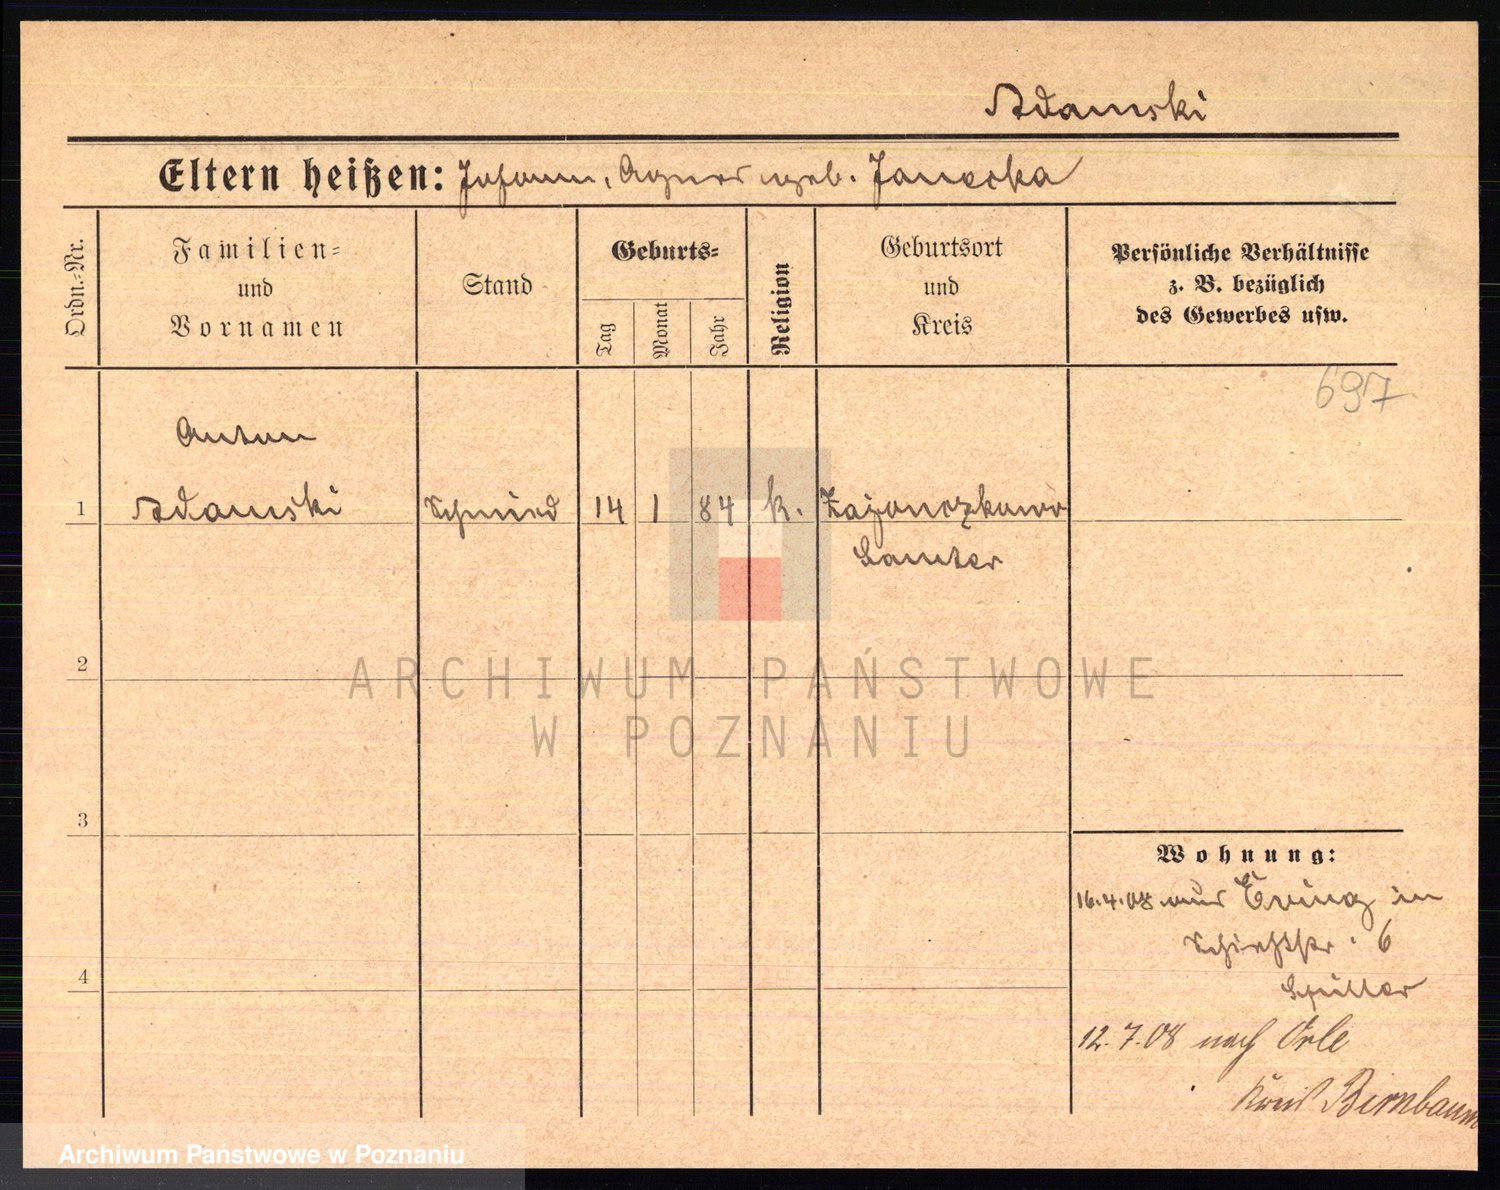 Adamski
Eltern heißen: Johann, Agnes geb. Janecka
Ordn.-Nr.
Familien-
und
Vornamen
Stand
Geburts-
Tag
Monat
Jahr
Religion
Geburtsort
und
Kreis
Persönliche Verhältnisse
z. B. bezüglich
des Gewerbes usw.
697
Anton
1 Adamski Schmied 14 1 84 k. Zajonczkowo
Samter
2
ARCHIWUM PAŃSTWOWE
W POZNANIU
3
4
Wohnung:
16.4.08 aus Eving in
6
Spiller
12.7.08 nach Orle
Kreis Birnbaum
Archiwum Państwowe w Poznaniu